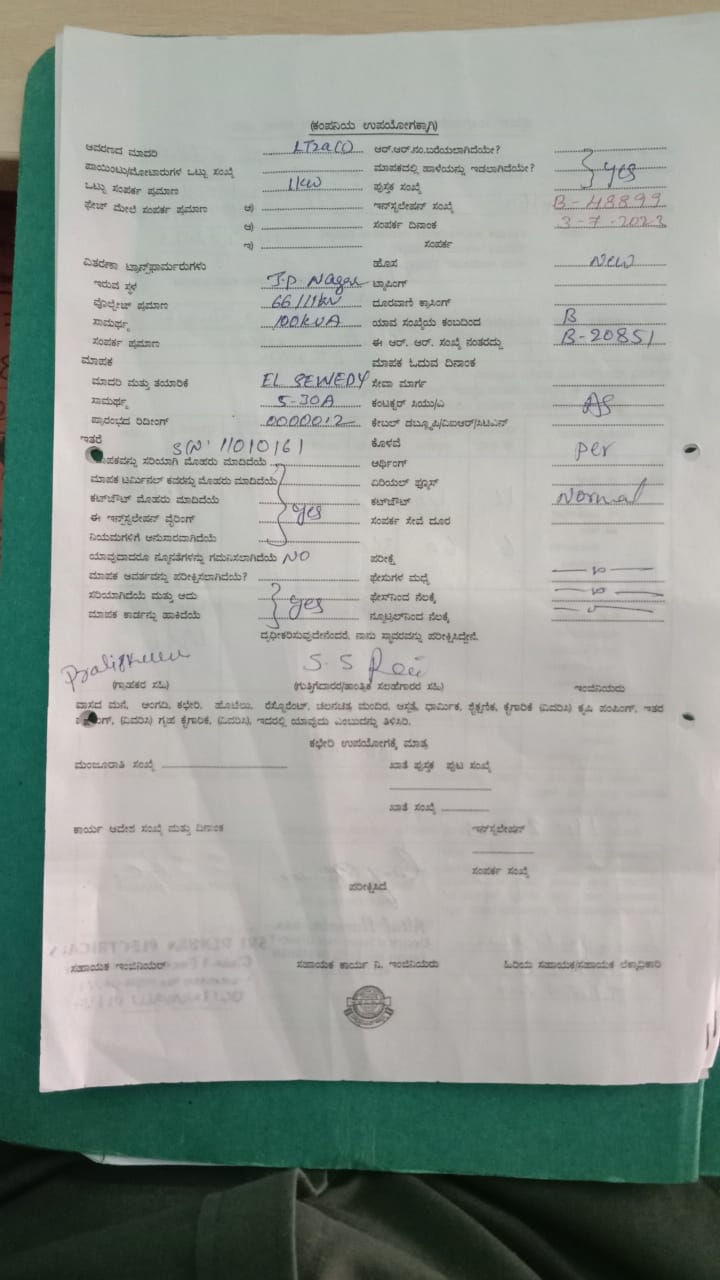 (ಕಂಪನಿಯ ಉಪಯೋಗಕ್ಕಾಗಿ)
ಆವರಣದ ಮಾದರಿ LT2a(i) ಆರ್.ಆರ್.ನಂ.ಬರೆಯಲಾಗಿದೆಯೇ?
ಪಾಯಿಂಟು/ಮೋಟಾರುಗಳ ಒಟ್ಟು ಸಂಖ್ಯೆ ಮಾಪಕದಲ್ಲಿ ಹಾಳೆಯನ್ನು ಇಡಲಾಗಿದೆಯೇ? yes
ಒಟ್ಟು ಸಂಪರ್ಕ ಪ್ರಮಾಣ 1kw ಪುಸ್ತಕ ಸಂಖ್ಯೆ
ಫೇಜ್ ಮೇಲೆ ಸಂಪರ್ಕ ಪ್ರಮಾಣ ಅ) ಇನ್‌ಸ್ಟಲೇಷನ್ ಸಂಖ್ಯೆ B-48899
ಆ) ಸಂಪರ್ಕ ದಿನಾಂಕ 3-7-2023
ಇ) ಸಂಪರ್ಕ
ವಿತರಣಾ ಟ್ರಾನ್ಸ್‌ಫಾರ್ಮರುಗಳು ಹೊಸ New
ಇರುವ ಸ್ಥಳ J.P Nagar ಟ್ಯಾಪಿಂಗ್
ವೊಲ್ಟೇಜ್ ಪ್ರಮಾಣ 66/11kv ದೂರವಾಣಿ ಕ್ರಾಸಿಂಗ್
ಸಾಮರ್ಥ್ಯ 100kVA ಯಾವ ಸಂಖ್ಯೆಯ ಕಂಬದಿಂದ B
ಸಂಪರ್ಕ ಪ್ರಮಾಣ ಈ ಆರ್. ಆರ್. ಸಂಖ್ಯೆ ನಂತರದ್ದು B-20851
ಮಾಪಕ ಮಾಪಕ ಓದುವ ದಿನಾಂಕ
ಮಾದರಿ ಮತ್ತು ತಯಾರಿಕೆ EL SEWEDY ಸೇವಾ ಮಾರ್ಗ
ಸಾಮರ್ಥ್ಯ 5-30A ಕಂಟಕ್ಟರ್ ಸಿಯು/ಎ AS
ಪ್ರಾರಂಭದ ರಿಡಿಂಗ್ 0000012 ಕೇಬಲ್ ಡಬ್ಲ್ಯೂಪಿ/ವಿಐಆರ್/ಸಿಟಿಎನ್
ಇತರೆ S(N: 11010161 ಕೊಳವೆ per
ಮಾಪಕವನ್ನು ಸರಿಯಾಗಿ ಮೊಹರು ಮಾಡಿದೆಯೆ ಆರ್ಥಿಂಗ್
ಮಾಪಕ ಟರ್ಮಿನಲ್ ಕವರನ್ನು ಮೊಹರು ಮಾಡಿದೆಯೆ ಏರಿಯಲ್ ಫ್ಯೂಸ್
ಕಟ್‌ಔಟ್ ಮೊಹರು ಮಾಡಿದೆಯೆ ಕಟ್‌ಔಟ್ Normal
ಈ ಇನ್‌ಸ್ಟಲೇಷನ್ ವೈರಿಂಗ್ yes ಸಂಪರ್ಕ ಸೇವೆ ದೂರ
ನಿಯಮಗಳಿಗೆ ಅನುಸಾರವಾಗಿದೆಯೆ
ಯಾವುದಾದರೂ ನ್ಯೂನತೆಗಳನ್ನು ಗಮನಿಸಲಾಗಿದೆಯೆ NO ಪರೀಕ್ಷೆ
ಮಾಪಕ ಆವರ್ತವನ್ನು ಪರೀಕ್ಷಿಸಲಾಗಿದೆಯೆ? ಫೇಸುಗಳ ಮಧ್ಯೆ
ಸರಿಯಾಗಿದೆಯೆ ಮತ್ತು ಅದು yes ಫೇಸ್‌ನಿಂದ ನೆಲಕ್ಕೆ
ಮಾಪಕ ಕಾರ್ಡನ್ನು ಹಾಕಿದೆಯೆ ನ್ಯೂಟ್ರಲ್‌ನಿಂದ ನೆಲಕ್ಕೆ
ದೃಢೀಕರಿಸುವುದೇನೆಂದರೆ, ನಾನು ಸ್ಥಾವರವನ್ನು ಪರೀಕ್ಷಿಸಿದ್ದೇನೆ.
S. S
(ಗ್ರಾಹಕರ ಸಹಿ) (ಗುತ್ತಿಗೆದಾರರ/ತಾಂತ್ರಿಕ ಸಲಹೆಗಾರರ ಸಹಿ) ಇಂಜಿನಿಯರು
ವಾಸದ ಮನೆ, ಅಂಗಡಿ, ಕಛೇರಿ, ಹೊಟೆಲು, ರೆಸ್ಟೊರೆಂಟ್, ಚಲನಚಿತ್ರ ಮಂದಿರ, ಆಸ್ಪತ್ರೆ, ಧಾರ್ಮಿಕ, ಶೈಕ್ಷಣಿಕ, ಕೈಗಾರಿಕೆ (ವಿವರಿಸಿ) ಕೃಷಿ ಪಂಪಿಂಗ್, ಇತರ
(ವಿವರಿಸಿ) ಗೃಹ ಕೈಗಾರಿಕೆ, (ವಿವರಿಸಿ), ಇದರಲ್ಲಿ ಯಾವುದು ಎಂಬುದನ್ನು ತಿಳಿಸಿರಿ.
ಕಛೇರಿ ಉಪಯೋಗಕ್ಕೆ ಮಾತ್ರ
ಮಂಜೂರಾತಿ ಸಂಖ್ಯೆ ಖಾತೆ ಪುಸ್ತಕ ಪುಟ ಸಂಖ್ಯೆ
ಖಾತೆ ಸಂಖ್ಯೆ
ಕಾರ್ಯ ಆದೇಶ ಸಂಖ್ಯೆ ಮತ್ತು ದಿನಾಂಕ ಇನ್‌ಸ್ಟಲೇಷನ್
ಸಂಪರ್ಕ ಸಂಖ್ಯೆ
ಪರೀಕ್ಷಿಸಿದೆ
ಸಹಾಯಕ ಇಂಜಿನಿಯರ್ ಸಹಾಯಕ ಕಾರ್ಯ ನಿ. ಇಂಜಿನಿಯರು ಹಿರಿಯ ಸಹಾಯಕ/ಸಹಾಯಕ ಲೆಕ್ಕಾಧಿಕಾರಿ